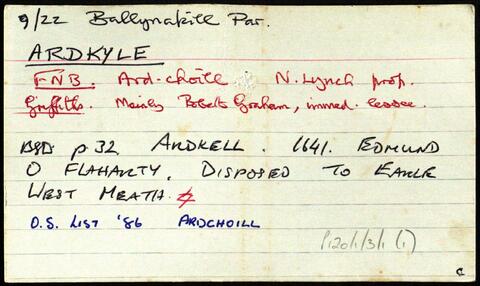 9/22 Ballynakill Par.
ARDKYLE
FNB. Ard-choill N. Lynch prop.
Griffiths. Mainly Roberts Graham, immed. lessee.
BSD p32 ARDKELL. 1641. EDMUND
O FLAHARTY. DISPOSED TO EARLE
WEST MEATH.
O.S. LIST '86 ARDCHOILL
P120/1/3/1 (1)
c